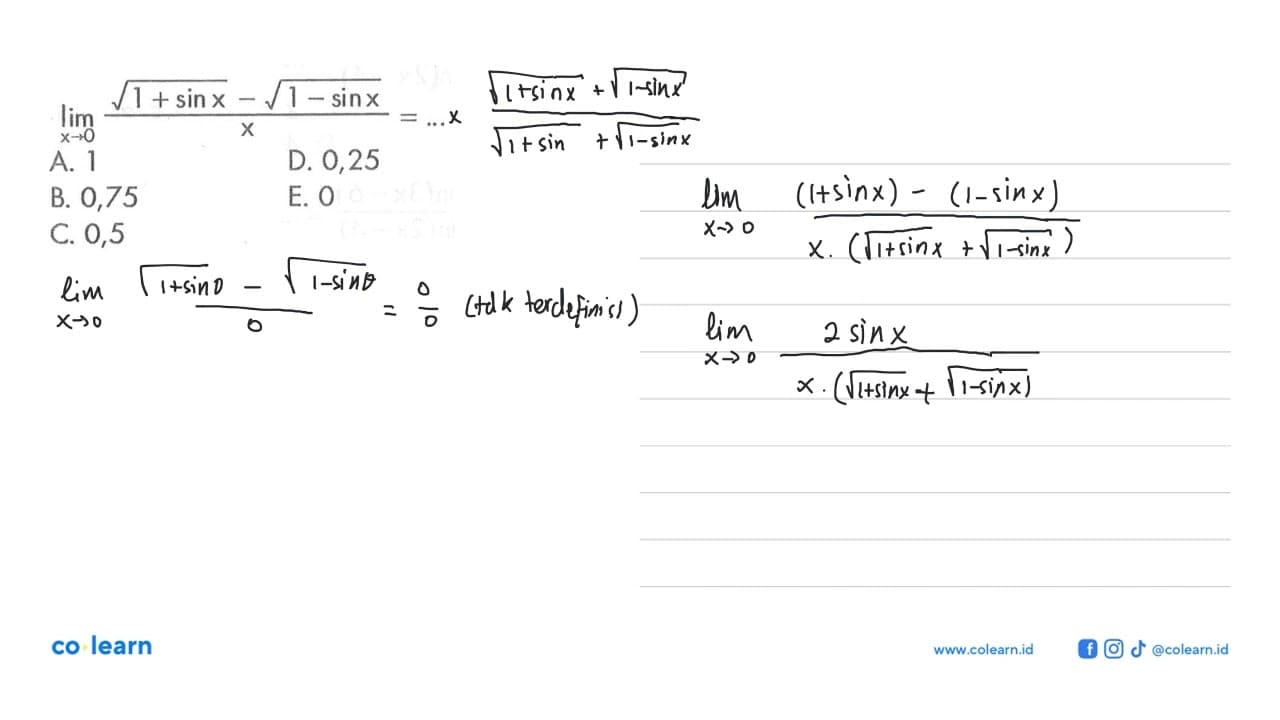 lim x→0 (√(1 + sin x) − √(1 − sin x)) / x = ... x (√(1+sinx) + √(1-sinx)) / (√(1+sin) + √(1-sinx))
A. 1 D. 0,25
B. 0,75 E. 0
C. 0,5
lim x→0 (√(1+sin0) − √(1-sin0)) / 0 = 0/0 (tdk terdefinisi)
lim x→0 ((1+sinx) − (1-sinx)) / (x. (√(1+sinx) + √(1-sinx)))
lim x→0 2 sinx / (x. (√(1+sinx) + √(1-sinx)))
co learn
www.colearn.id
@colearn.id